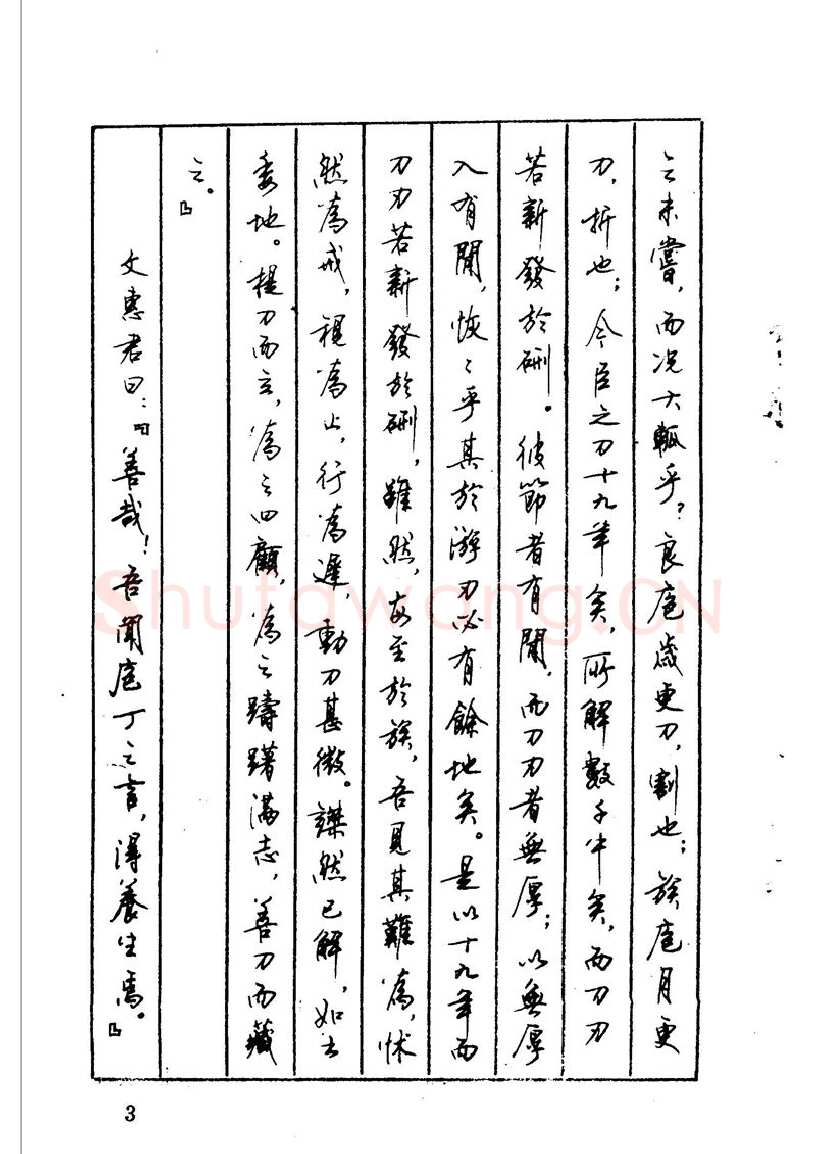 之未嘗，而况大軱乎？良庖歲更刀，割也；族庖月更
刀，折也；今臣之刀十九年矣，所解數千牛矣，而刀刃
若新發於硎。彼節者有閒，而刀刃者無厚；以無厚
入有閒，恢〻乎其於游刃必有餘地矣。是以十九年而
刀刃若新發於硎，雖然，每至於族，吾見其難為，怵
然為戒，視為止，行為遲，動刀甚微。謋然已解，如土
委地。提刀而立，為之四顧，為之躊躇滿志，善刀而藏
之。』
文惠君曰：『善哉！吾聞庖丁之言，得養生焉。』
Shufawang.CN
3